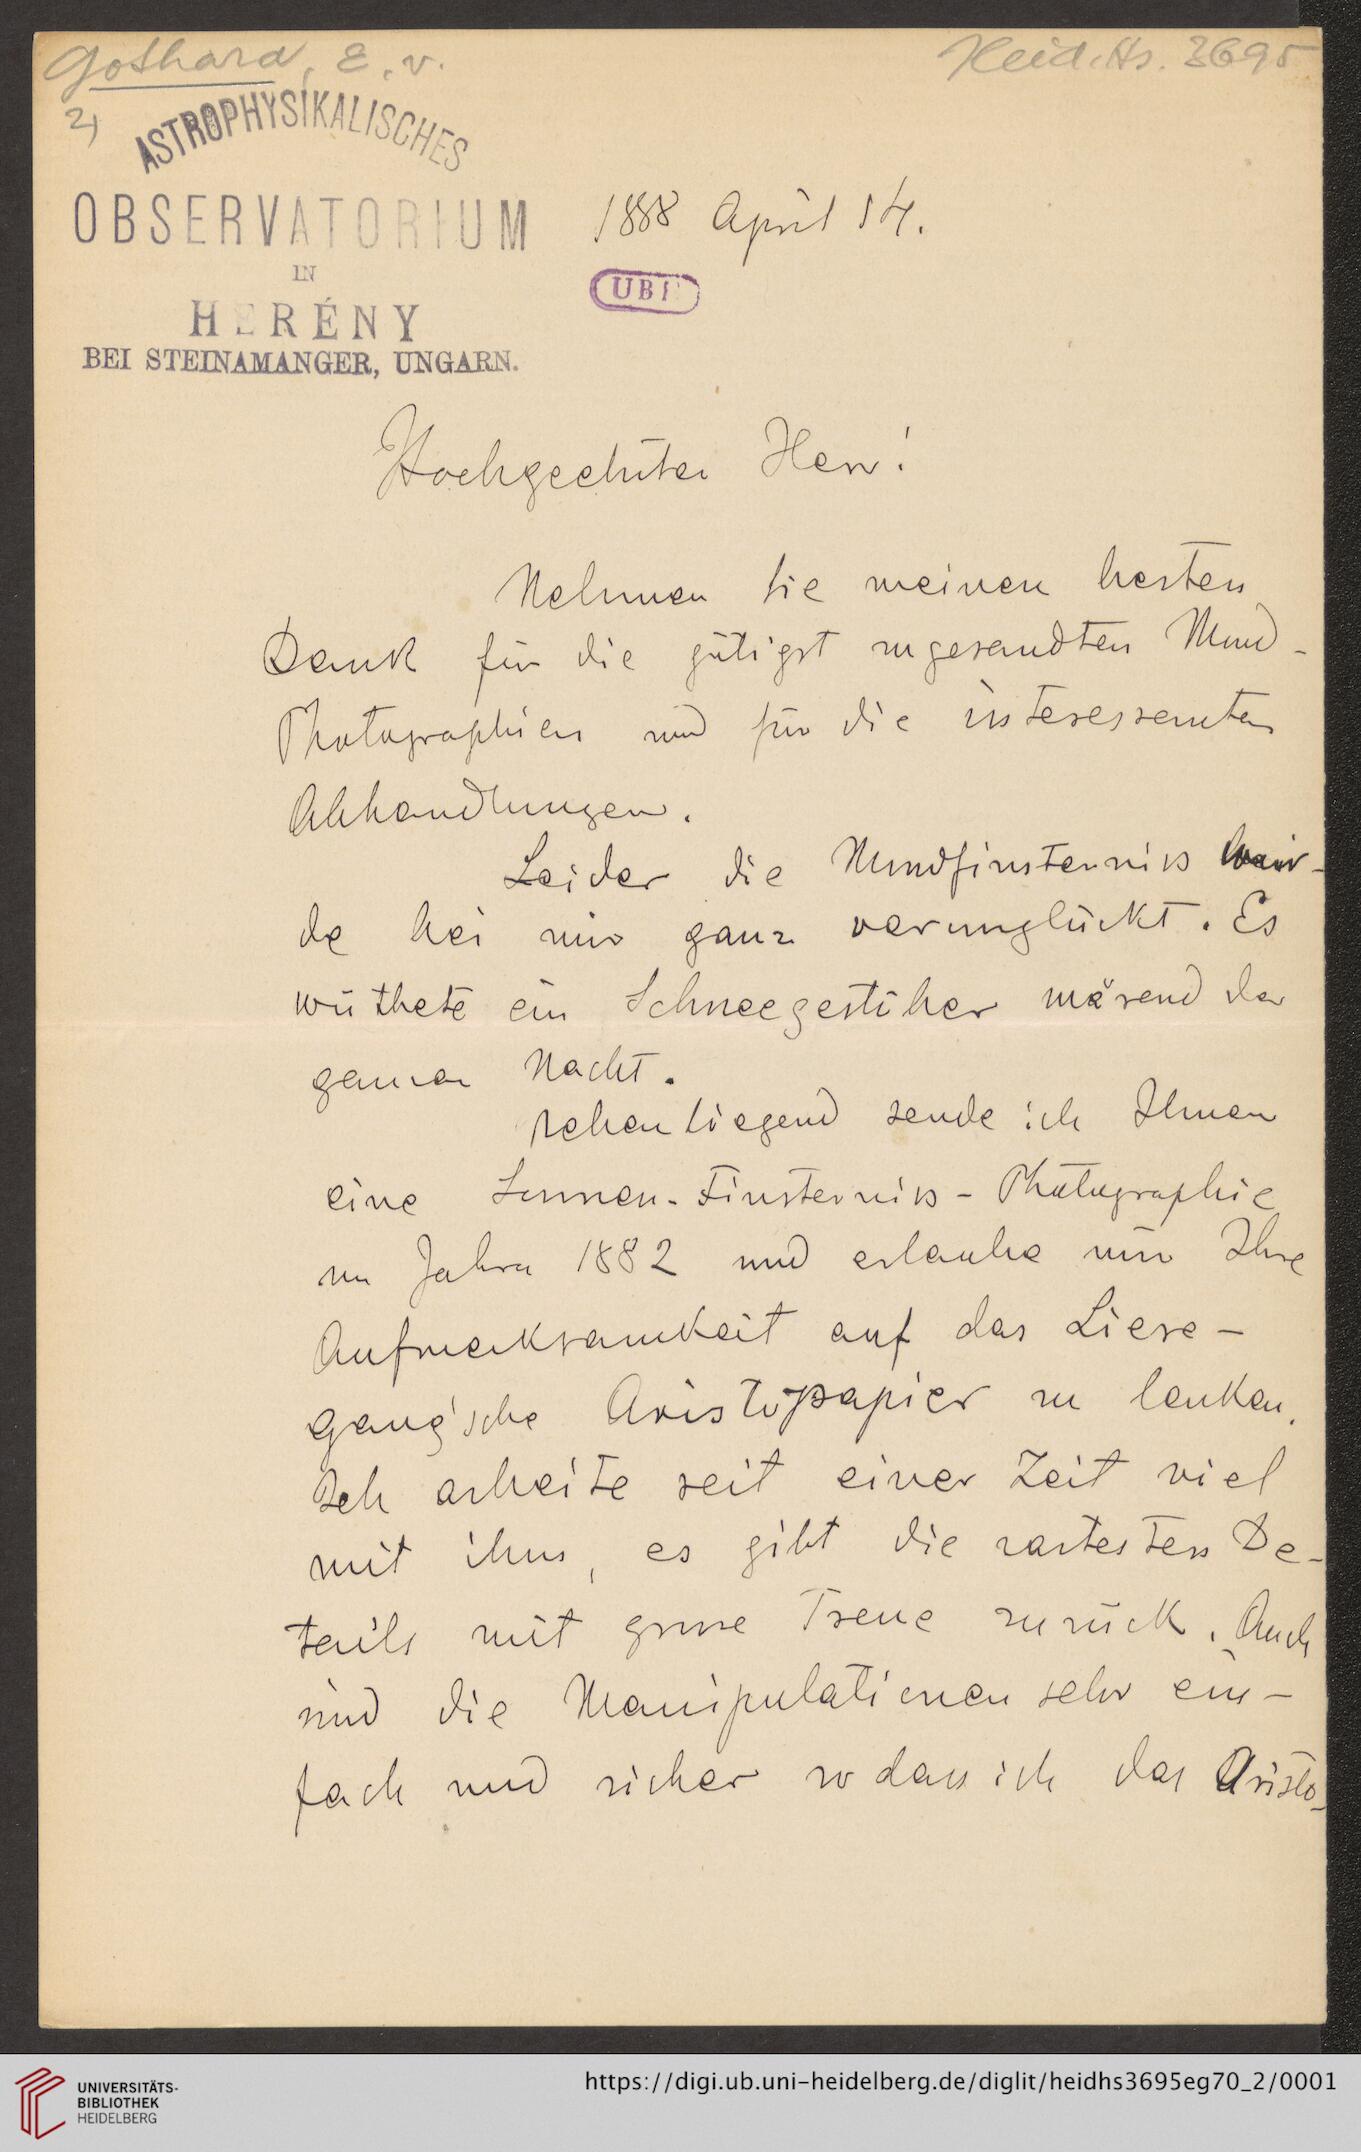 Gothard, E. v.
Heid. Hs. 3695
2)
ASTROPHYSIKALISCHES
OBSERVATORIUM
IN
HERÉNY
BEI STEINAMANGER, UNGARN.
1888 April 14.
UBH
Hochgeehrter Herr!
Nehmen Sie meinen besten
Dank für die gütigst zugesandten Mond-
Photographien und für die interessanten
Abhandlungen.
Leider die Mondfinsterniss wur-
de bei mir ganz verunglückt. Es
wüthete ein Schneegestöber wärend der
ganzen Nacht.
Nebenliegend sende ich Ihnen
eine Sonnen-Finsterniss-Photographie
im Jahre 1882 und erlaube mir Ihre
Aufmerksamkeit auf das Liese-
gang'sche Aristopapier zu lenken.
Ich arbeite seit einer Zeit viel
mit ihm, es gibt die zartesten De-
tails mit grosse Treue zurück. Auch
sind die Manipulationen sehr ein-
fach und sicher so dass ich das Aristo-
UNIVERSITÄTS-
BIBLIOTHEK
HEIDELBERG
https://digi.ub.uni-heidelberg.de/diglit/heidhs3695eg70_2/0001